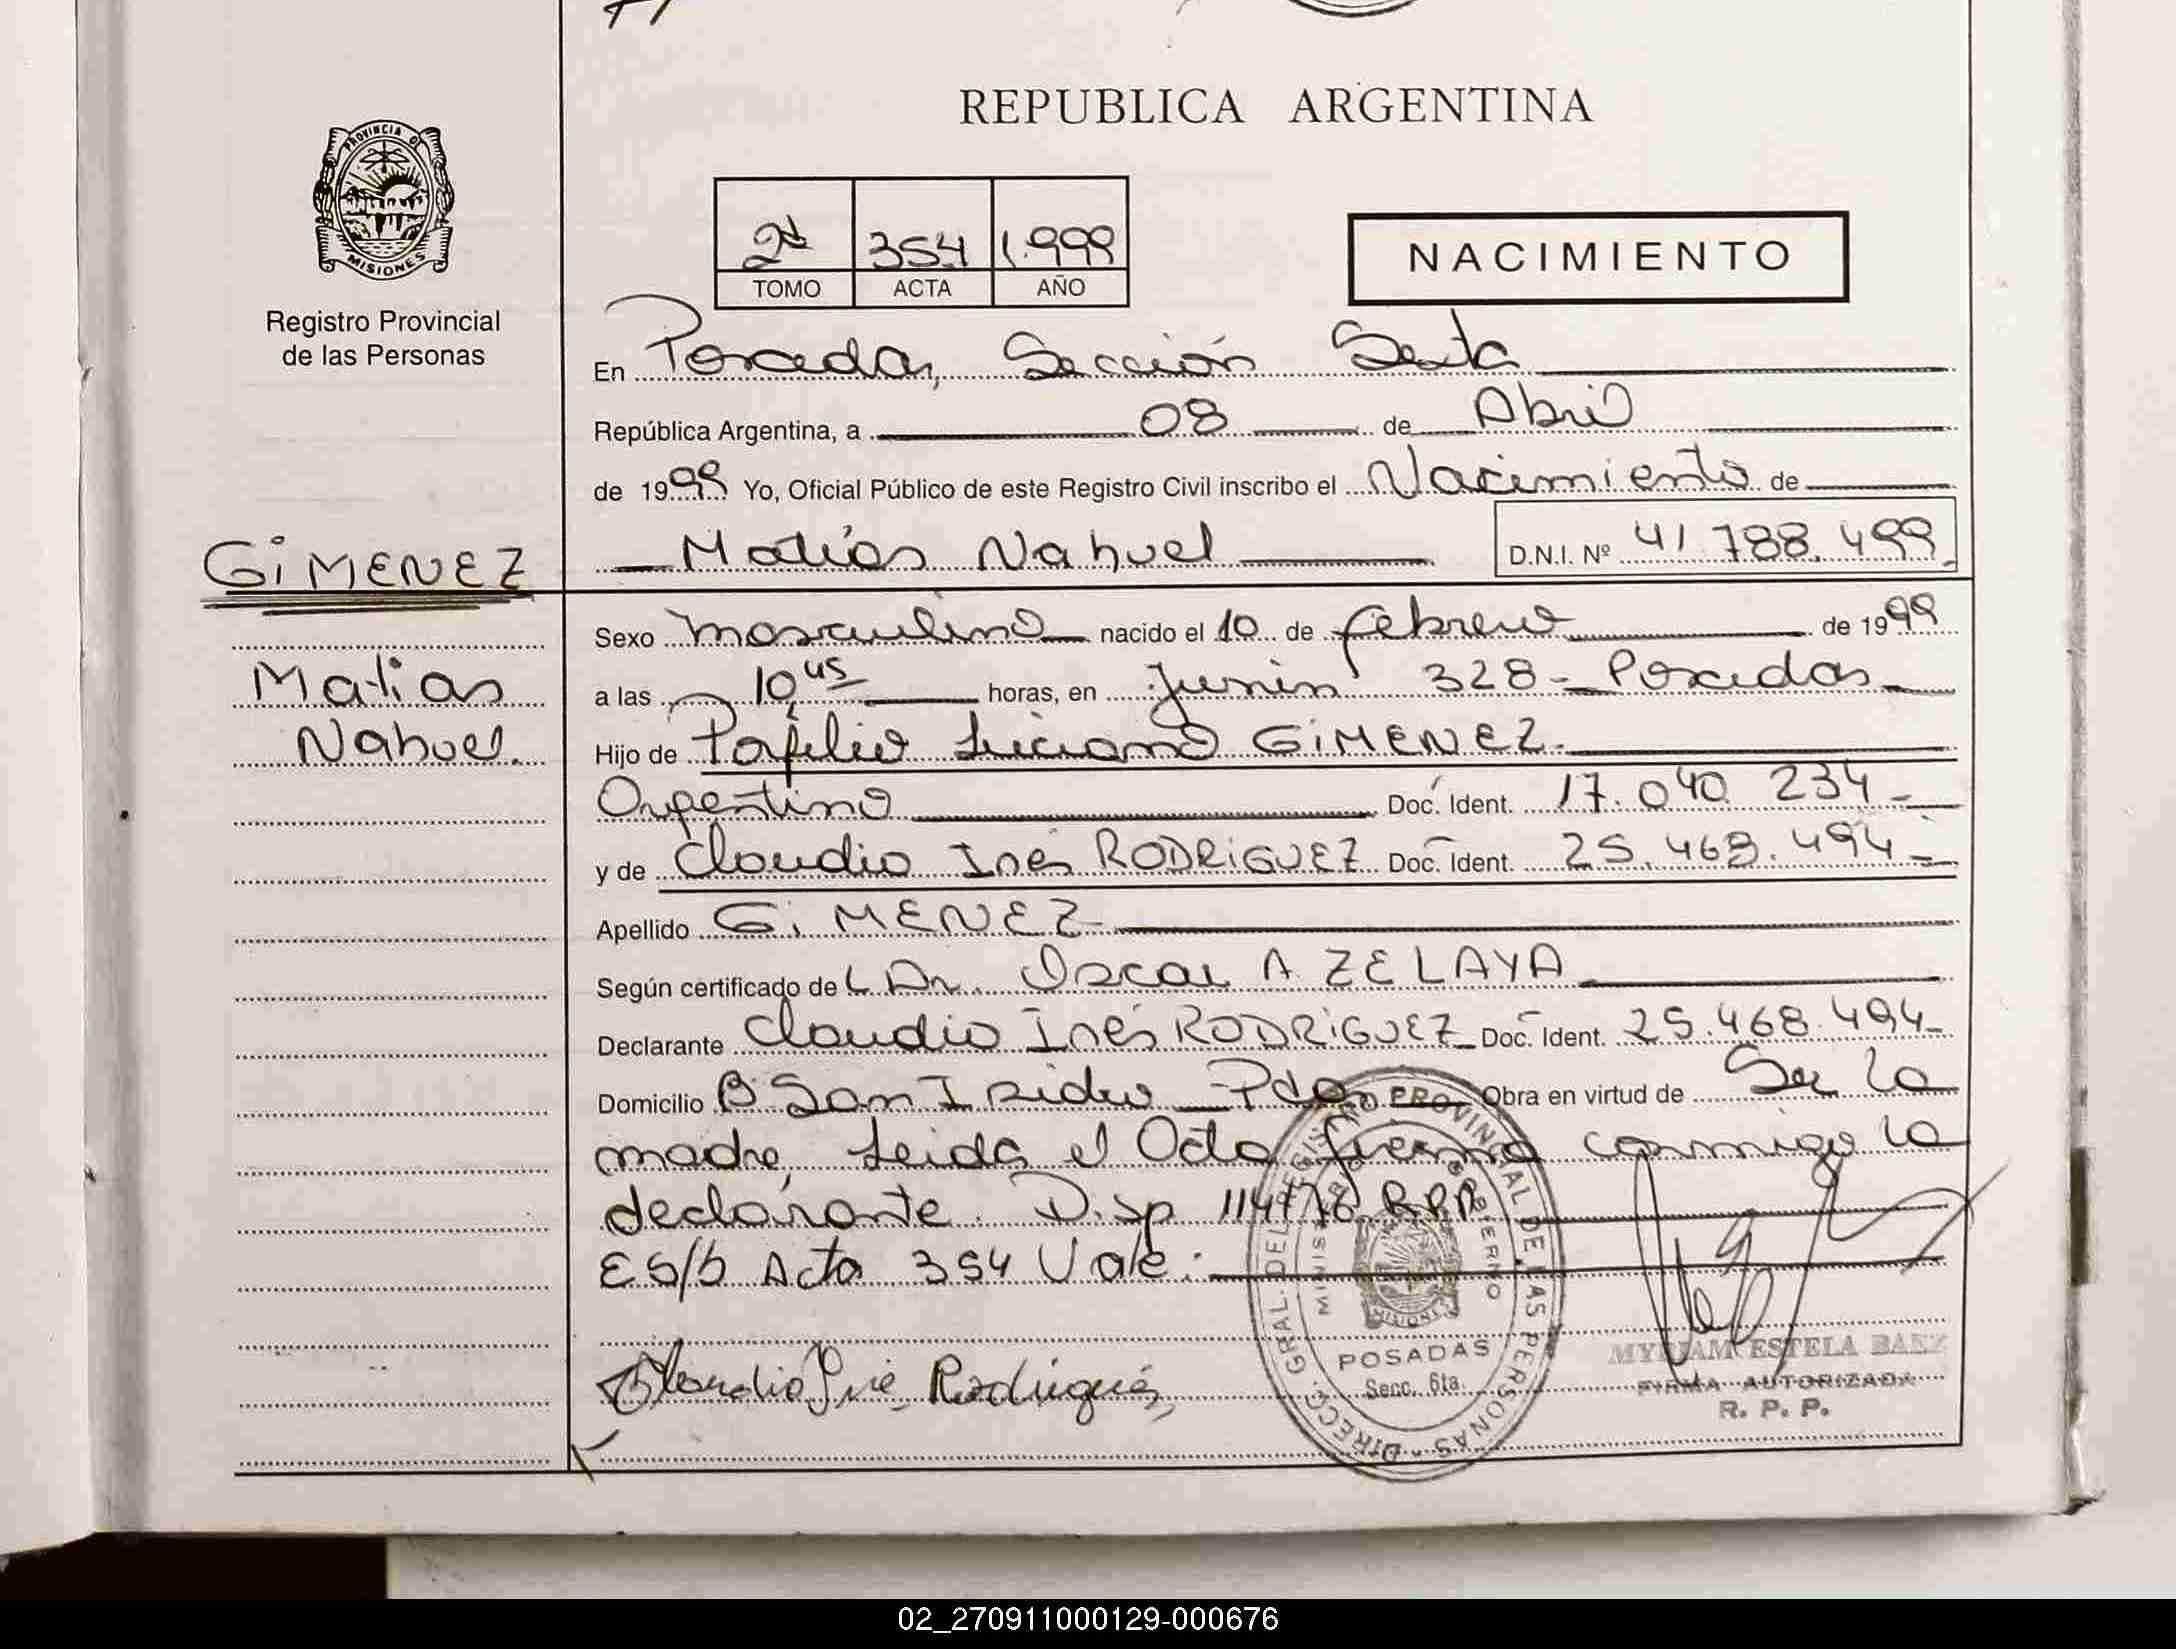 REPUBLICA ARGENTINA
PROVINCIA DE
MISIONES
Registro Provincial
de las Personas
2º 354 1.999
TOMO ACTA AÑO
NACIMIENTO
En Posadas, Sección Sexta
República Argentina, a 08 de Abril
de 1999 Yo, Oficial Público de este Registro Civil inscribo el Nacimiento de
Matías Nahuel D.N.I. Nº 41.788.499
GiMENEZ
Matias
Nahuel.
Sexo masculino nacido el 10 de febrero de 1999
a las 10,45 horas, en Junin 328 - Posadas
Hijo de Luciano GiMENEZ
Argentino Doc. Ident. 17.040.234
y de Claudia Inés RODRiGUEZ Doc. Ident. 25.468.494
Apellido GiMENEZ
Según certificado de Dr. Oscar A. ZELAYA
Declarante Claudia Inés RODRiGUEZ Doc. Ident. 25.468.494
Domicilio Bº San Isidro - Pdas Obra en virtud de Ser la
madre, Leida el Acta firma conmigo la
declarante. Disp 114/78 R.P.P.
ES/b Acta 354 Vale.
Claudia Ine Rodrigues
DIRECC. GRAL. DEL REGISTRO PROVINCIAL DE LAS PERSONAS
POSADAS
Secc. 6ta.
MYRIAM ESTELA BAEZ
FIRMA AUTORIZADA
R. P. P.
02_270911000129-000676